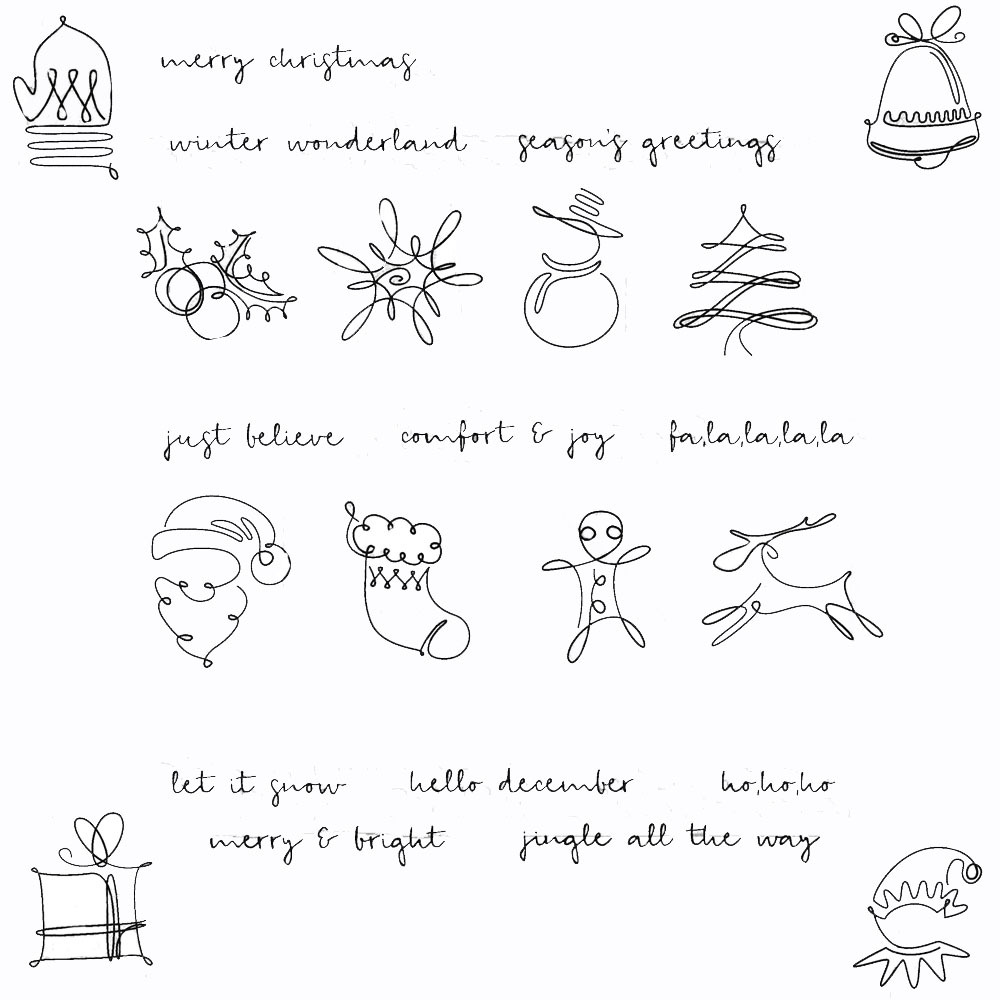 merry christmas
winter wonderland season's greetings
just believe comfort & joy fa,la,la,la,la
let it snow hello december ho,ho,ho
merry & bright jingle all the way